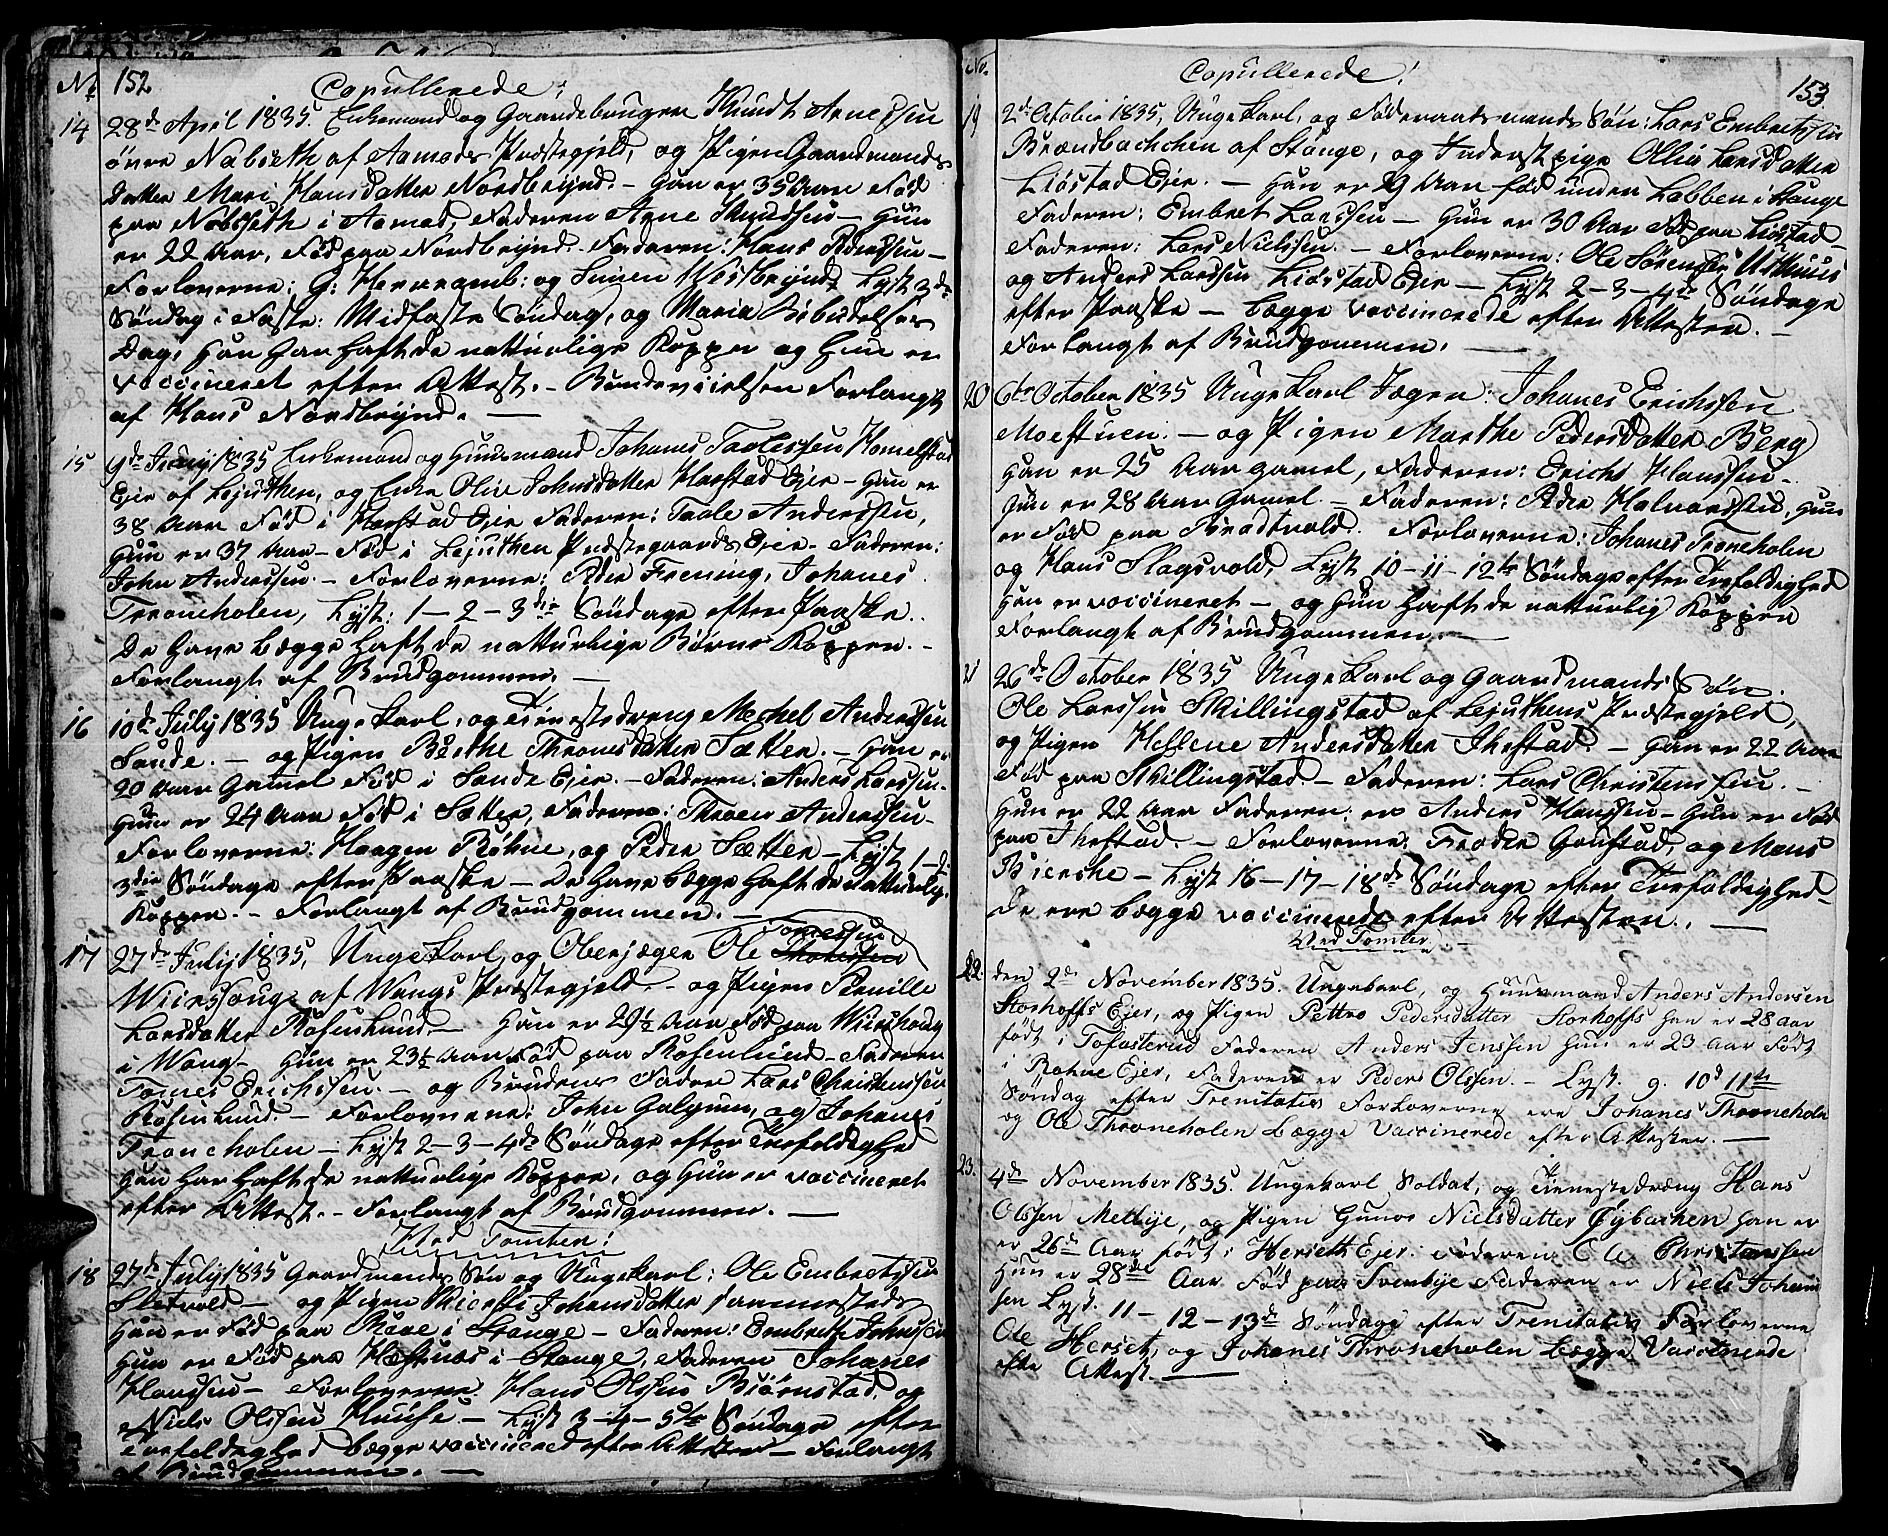 No. 152 Copullerede:
14 28de April 1835 Enkemand og Gaardebruger Knudt Arnessen
øvre Nabseth af Aamods Præstegjeld, og Pigen Gaardmands
datter Mari Hansdatter Nordbrynd. – Han er 35 Aar Fød
paa Nabseth i Aamod, Faderen Arne Knudssen – Hun
er 22 Aar, Fød paa Nordbrynd. Faderen: Hans Pederssen –
Forloverne: G: Herrramb: og Simen Westbrynd, Lyst 3de
Søndag i Faste: Midfaste Søndag, og Maria Bebudelses
Dag, Han har haft de natturlige Kopper og Hun er
vaccineret efter Attest. – Brudevielsen Forlangt
af Hans Nordbrynd. –
15 9de Juny 1835 Enkemand og Huusmand Johanes Taalessen Homelstad
Ejer af Lejuthen, og Enke Olia Johnsdatter Harstad Ejer – Han er
38 Aar Fød i Harstad Ejer Faderen: Taale Anderssen,
Hun er 37 Aar – Fød i Lejuthen Præstegaards Ejer – Faderen:
John Anderssen. – Forloverne: Peder Frening, Johanes
Troneholen, Lyst: 1 – 2 – 3die Søndage efter Paaske.
De have begge haft de natturlige Børne Kopper. –
Forlangt af Brudgommen. –
16 10de July 1835 Unge Karl, og Tienestedreng Mechel Anderssen
Sande. – og Pigen Berthe Thronesdatter Sætter. – Han er
20 Aar Gamel Fød i Sande Ejer. – Faderen: Anders Larssen.
Hun er 24 Aar Fød i Sætter, Faderen: Throen Anderssen –
Forloverne: Haagen Røhne, og Peder Sætter – Lyst 1 – 2 –
3die Søndage efter Paaske – De have begge haft de natturlig
Kopper. – Forlangt af Brudgommen. –
Tomessen
17 27de July 1835, Unge Karl, og Oberjæger Ole
af Wangs Præstegjeld. – og Pigen Pernille
Larsdatter Rosenlund. – Han er 29½ Aar Fød paa
i Wang – Hun er 23½ Aar Fød paa Rosenlund – Faderen
Tomes Erichssen. – og Brudens Fader Lars Christenssen
Rosenlund. – Forloverne: John Galgum, og Johanes
Troneholen – Lyst 2 – 3 – 4de Søndage efter Trefoldighed
Han har haft de natturlige Kopper, og Hun er vaccineret
efter Attest. – Forlangt af Brudgommen. –
Ved Tomten:
18 27de July 1835 Gaardmands Søn og Unge Karl: Ole Embretssen
Sletvold – og Pigen Kiersti Johansdatter
Han er Fød paa i Stange – Faderen: Embrett Johnssen
Hun er Fød paa Hæsnæs i Stange, Faderen Johanes
Hanssen – Forloveren Hans Olssen Biørnstad, og
Niels Olssen Huuse – Lyst 3 – 4 – 5te Søndage efter
Trefoldighed begge vaccinered efter Attester – Forlangt
af Brudgommen. –
No. Copullerede: 153
19 2de October 1835, Unge Karl, og Føderaadsmands Søn: Lars Embretssen
Brændbachchen af Stange, og Inderst pige Olia Larsdatter
Liøstad Ejer. – Han er 29 Aar fød under Labben i Stange
Faderen: Embret Larssen – Hun er 30 Aar Fød paa Liøstad –
Faderen: Lars Nielssen – Forloverne: Ole Sørenssen
og Anders Larssen Liøstad Ejer – Lyst 2 – 3 – 4de Søndage
efter Paaske – begge vaccinerede efter Attesten. –
Forlangt af Brudgommen. –
20 6te October 1835 Unge Karl Jæger: Johanes Erichssen
Moestuen. – og Pigen Marthe Pedersdatter Berg
Han er 25 Aar gamel, Faderen: Erich Hanssen –
Hun er 28 Aar Gamel. – Faderen: Peder Halvordssen, Hun
er Fød paa Forloverne: Johanes Troneholen
og Hans Slagsvold, Lyst 10 – 11 – 12te Søndage efter Trefoldighed
Han er vaccineret – og Hun haft de natturlig Kopper
Forlangt af Brudgommen. –
21 26de October 1835 Unge Karl og Gaardmands Søn.
Ole Larssen Skillingstad af Lejuthens Præstegjeld,
og Pigen Hellene Andersdatter Ihestad. – Han er 22 Aar
Fød paa Skillingstad – Faderen: Lars Christenssen. –
Hun er 22 Aar Faderen er Anders Hanssen – Hun er Fød
paa Ihestad. – Forloverne: Frode og Mons
Bierche – Lyst 16 – 17 – 18de Søndage efter Trefoldighed –
De ere begge vaccinerede efter Attesten. –
Ved Tomter –
22. den 2de November 1835. Ungekarl, og Huusmand Anders Andersen
Storhoffs Ejer, og Pigen Pettro Pedersdatter Storhoffs Han er 28 Aar
født i Tofasterud Faderen Anders Jenssen Hun er 23 Aar Født
i Røhne Ejer, Faderen er Peder Olssen. – Lyst. 9. 10d 11te
Søndag efter Trenitatis Forloverne ere Johanes Throneholen
og Ole Throneholen begge Vaccinerede efter Attester. –
23. 4de November 1835. Ungekarl Soldat, og Tienestedræng Hans
Olssen Metbye, og Pigen Gunor Nielsdatter Øybachen Han er
er 26de Aar født i Herseth Ejer Faderen Ole Christenssen
Hun er 28de Aar Fød paa Svenbye Faderen er Niels Johans
sen Lyst. 11 – 12 – 13de Søndage efter Trenitatis Forloverne
Ole Herset, og Johanes Throneholen begge Vaccinerede
efter Attest. –